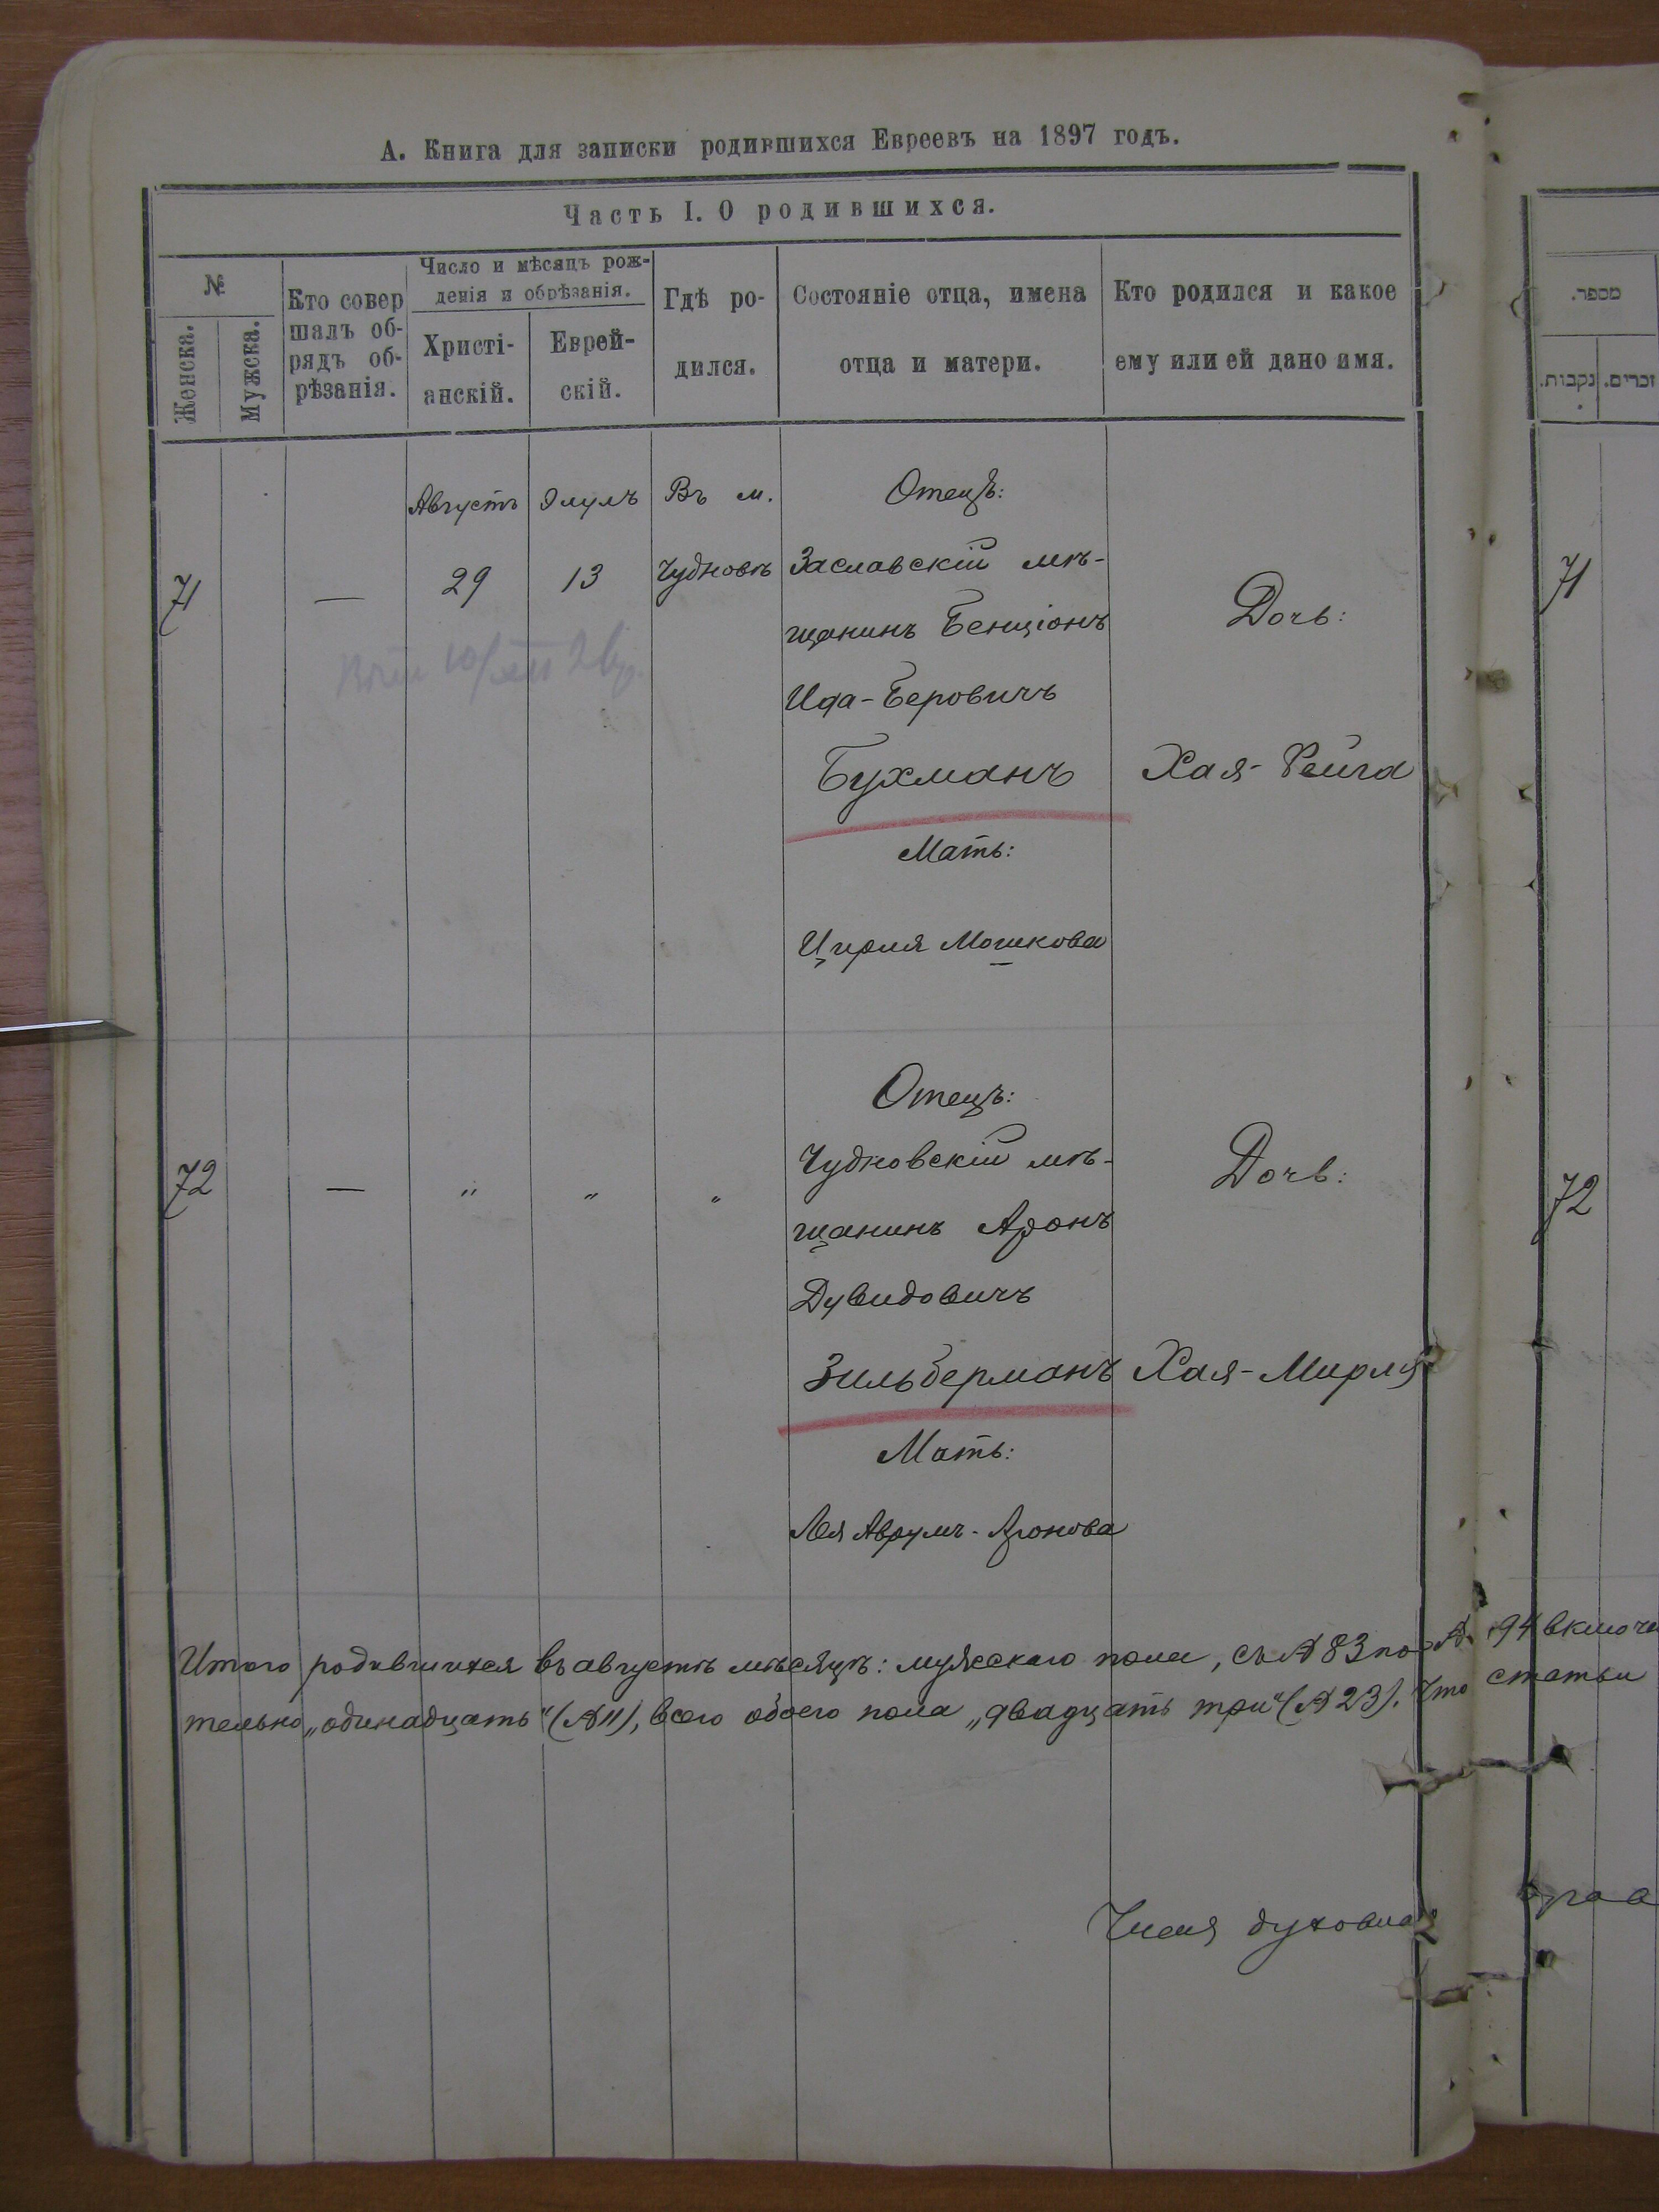 А. Книга для записки родившихся Евреевъ на 1897 годъ.
Часть I. О родившихся.
№
Женска.
Мужска.
Кто совер
шалъ об-
рядъ об-
рѣзанія.
Число и мѣсяцъ рож-
денія и обрѣзанія.
Христі-
анскій.
Еврей-
скій.
Гдѣ ро-
дился.
Состояніе отца, имена
отца и матери.
Кто родился и какое
ему или ей дано имя.
מספר.
נקבות.
זכרים.
Августъ
Элулъ
Въ м.
Отецъ:
71
—
29
13
Чудновѣ
Заславскій мѣ-
щанинъ Бенціонъ
Ида-Беровичъ
Бухманъ
Мать:
Цирля Мошкова
Дочь:
Хая-Рейза
71
72
—
"
"
"
Отецъ:
Чудновскій мѣ-
щанинъ Аронъ
Дувидовичъ
Зильберманъ
Мать:
Лея Аврумъ-Аронова
Дочь:
Хая-Мирля
72
Итого родившихся въ августѣ мѣсяцѣ: мужескаго пола, съ № 83 по № 94 включи
тельно „одинадцать" (№ 11), всего обоего пола „двадцать три" (№ 23). Что статьи
духовнаго